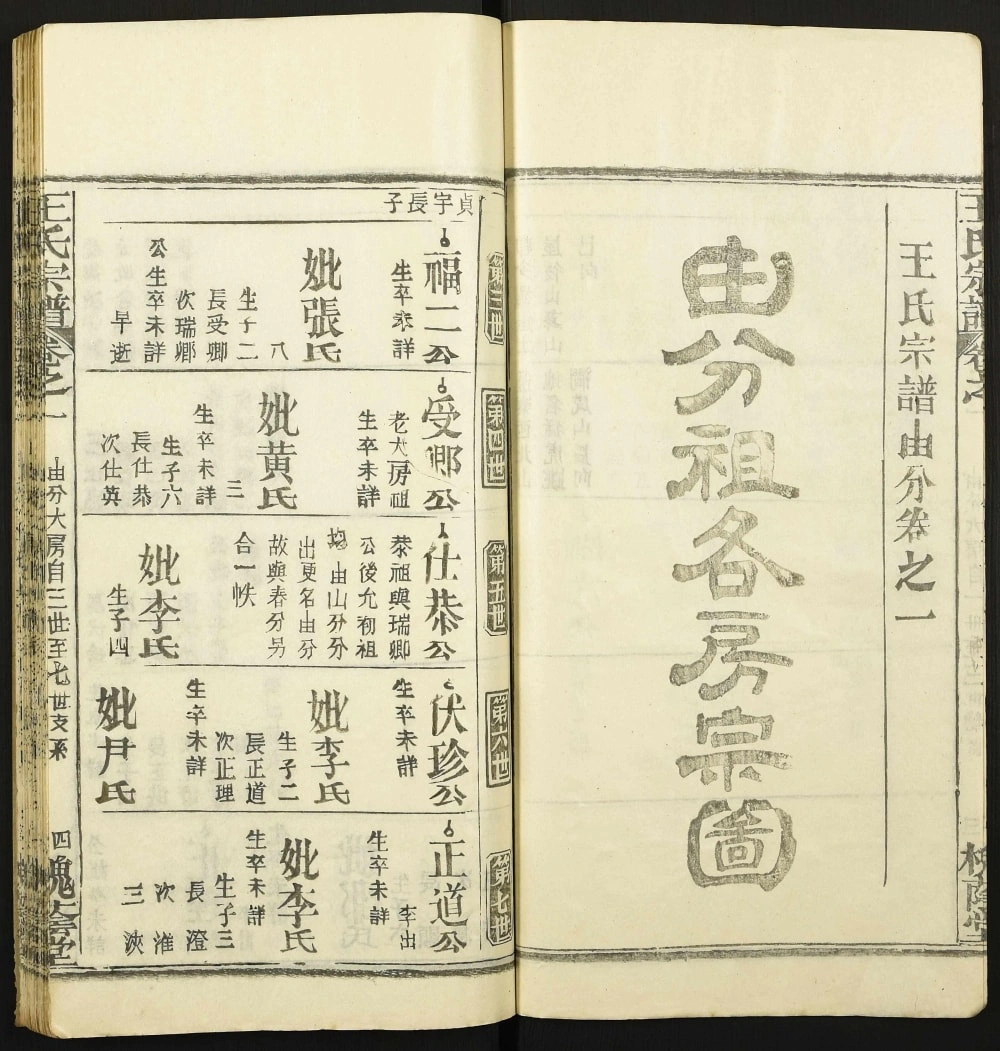 王氏宗譜由分卷之一
由分祖各房宗啚
第三世
貞宇長子
福二公
生卒未詳
妣張氏
八
生子二
長受卿
次瑞卿
公生卒未詳
早逝
第四世
受卿公
老大房祖
生卒未詳
妣黄氏
三
生卒未詳
生子六
長仕恭
次仕英
第五世
仕恭公
恭祖與瑞卿
公後允初祖
均由山分分
出更名由分
故與春分另
合一帙
妣李氏
生子四
第六世
伏珍公
生卒未詳
妣李氏
生子二
長正道
次正理
生卒未詳
妣尹氏
第七世
正道公
李出
生卒未詳
妣李氏
生卒未詳
生子三
長澄
次淮
三浹
王氏宗譜
卷之一
由分大房自三世至七世支系
四槐蔭堂